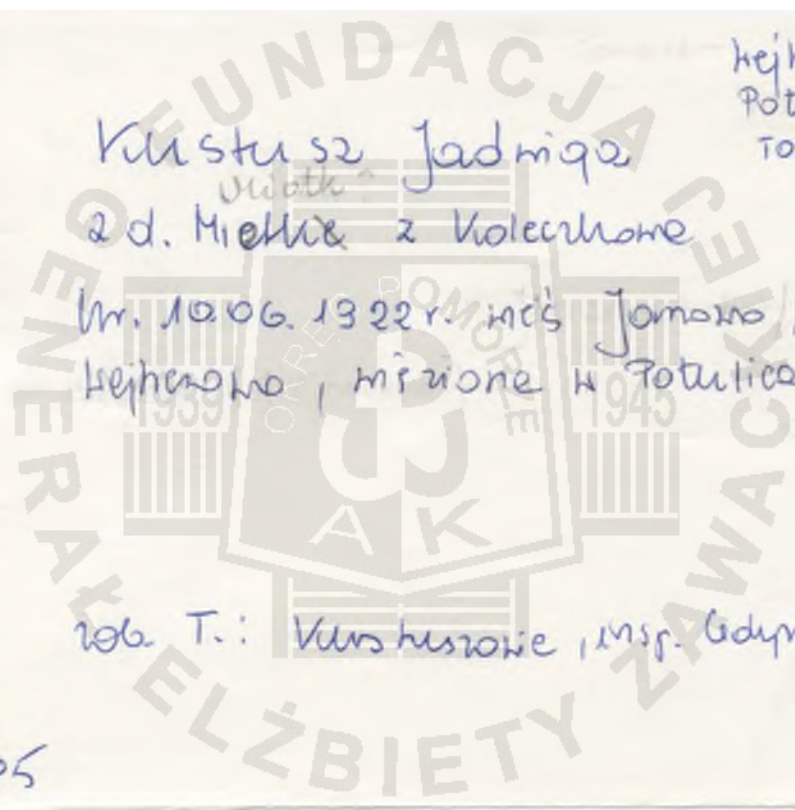 Wejh
Pot
TO
Kustusz Jadwiga
Miotk?
z d. Mielke z Koleczkowa
Ur. 10.06.1922 r. wieś Janowo
Wejherowo, więziona w Potulica
zob. T.: Kustuszowie, insp. Gdyn
05
FUNDACJA
GENERAŁ ELŻBIETY ZAWACKIEJ
OKRĘG POMORZE
1939
1945
AK